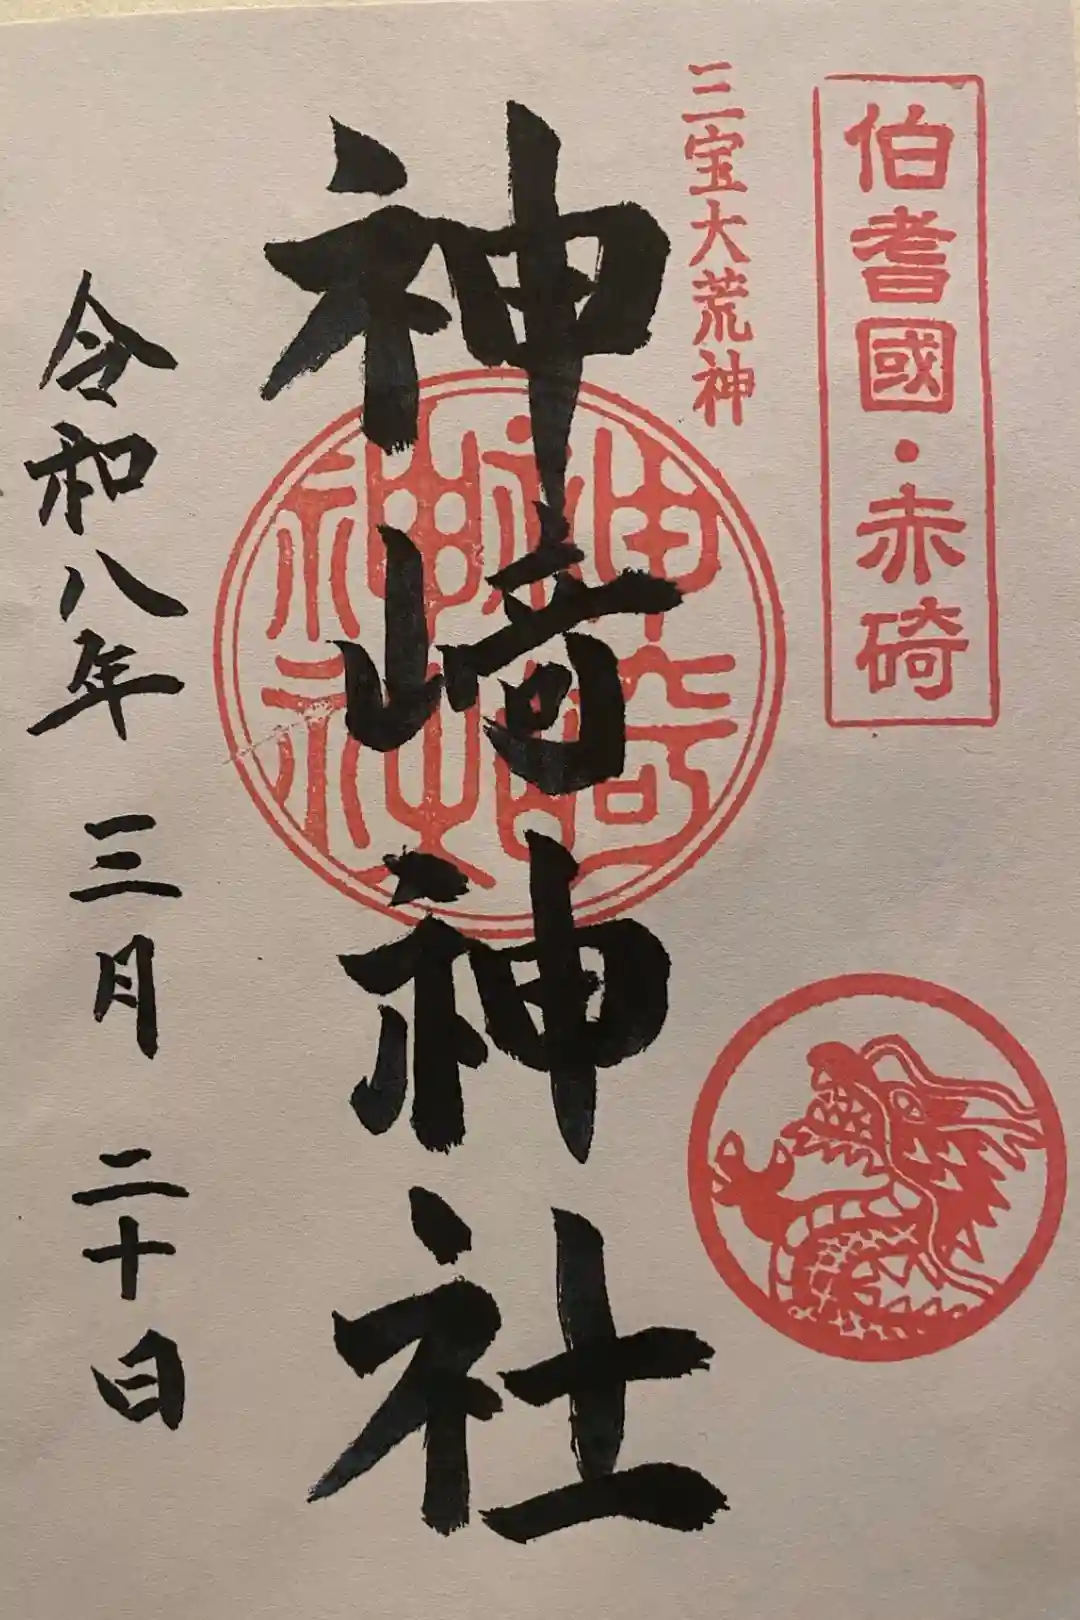 伯耆國・赤碕
三宝大荒神
神﨑神社
令和八年 三月 二十日